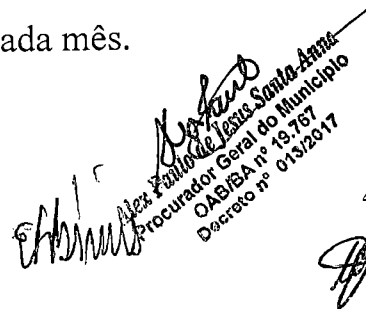 ada mês.
Alex Paulo de Jesus Santa Anna
Procurador Geral do Município
OAB/BA nº 19.767
Decreto nº 013/2017